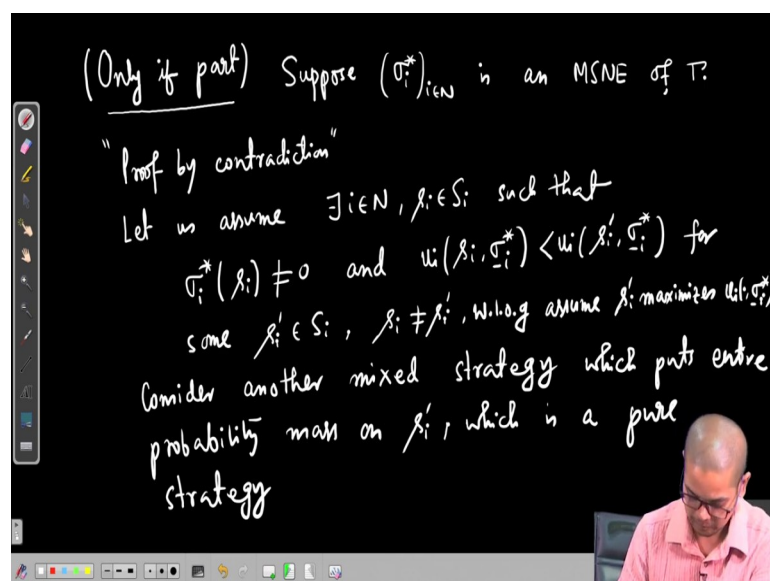 (Only if part) Suppose (σᵢ*)ᵢ∈N is an MSNE of Γ.
"Proof by contradiction"
Let us assume ∃ i∈N, sᵢ∈Sᵢ such that
σᵢ*(sᵢ) ≠ 0 and uᵢ(sᵢ, σ₋ᵢ*) < uᵢ(sᵢ', σ₋ᵢ*) for
some sᵢ' ∈ Sᵢ, sᵢ ≠ sᵢ', w.l.o.g assume sᵢ' maximizes uᵢ(·, σ₋ᵢ*)
Consider another mixed strategy which puts entire
probability mass on sᵢ', which is a pure
strategy